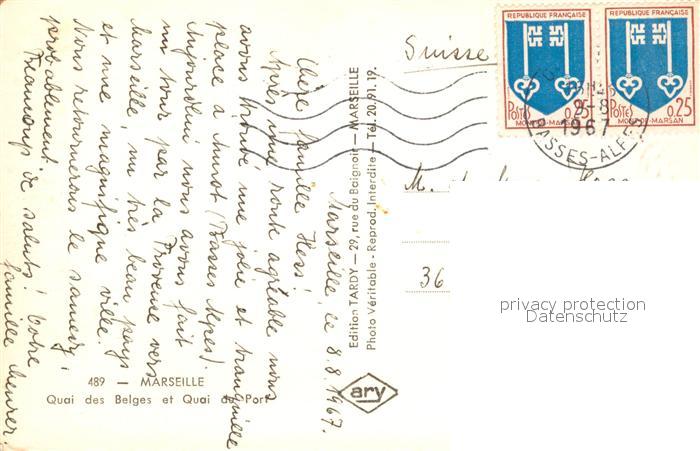 Marseille, ce 8.8.1967.
Chère famille Hess!
Après une route agréable nous
avons trouvé une jolie et tranquille
place à Annot (Basses Alpes).
Aujourd'hui nous avons fait
un tour par la Provence vers
Marseille un très beau pays
et une magnifique ville.
Nous retournerons le samedi
probablement.
Beaucoup de saluts! Votre
famille
489 - MARSEILLE
Quai des Belges et Quai du Port
Edition TARDY — 29, rue du Baignoir — MARSEILLE
Photo Véritable - Reprod. Interdite — Tél. 20.91.19.
ary
Suisse
REPUBLIQUE FRANÇAISE
POSTES 0,25
MONT-DE-MARSAN
REPUBLIQUE FRANÇAISE
POSTES 0,25
MONT-DE-MARSAN
8-8
1967
BASSES-ALPES
M.
36
privacy protection
Datenschutz